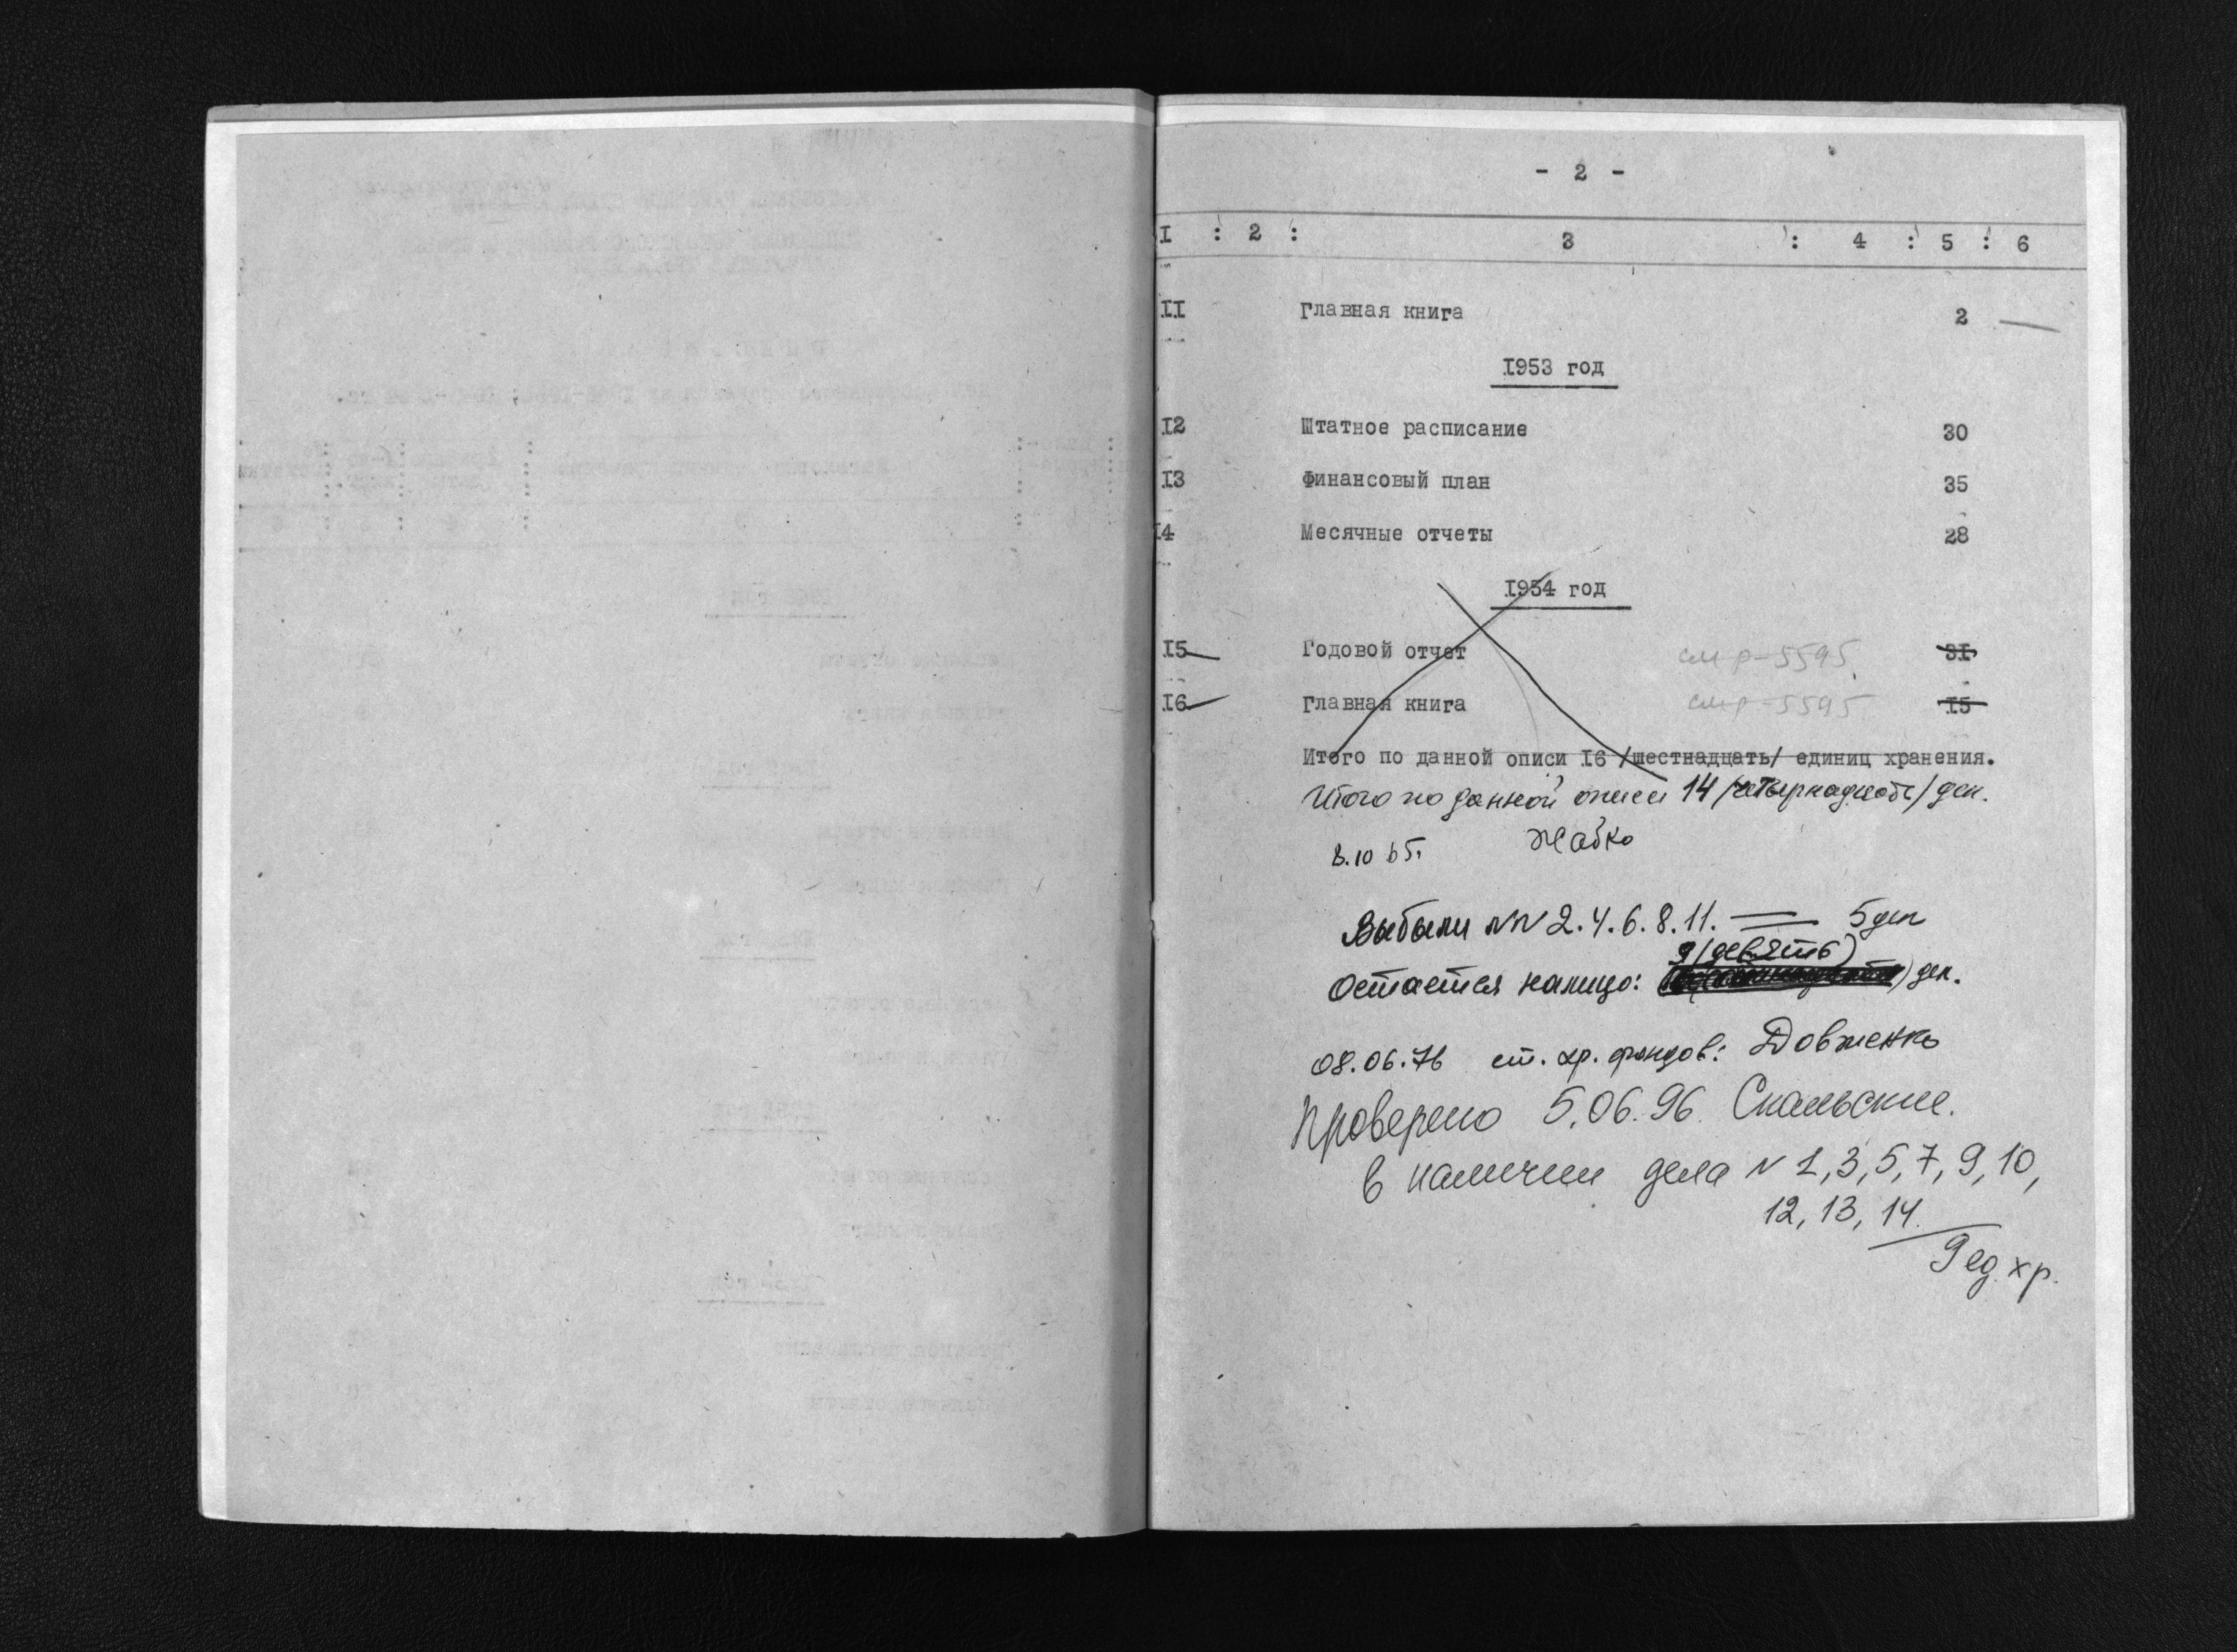 - 2 -
I : 2 : 3 : 4 : 5 : 6
II Главная книга 2
1953 год
I2 Штатное расписание 30
I3 Финансовый план 35
I4 Месячные отчеты 28
1954 год
I5 Годовой отчет см р-5595 31
I6 Главная книга см р-5595 15
Итого по данной описи I6 /шестнадцать/ единиц хранения.
Итого по данной описи 14 /четырнадцать/ дел.
8.10 65г. Жабко
Выбыли NN 2.4.6.8.11. — 5 дел
9 (девять)
Остается налицо: дел.
08.06.76 ст. хр. фондов: Довженко
Проверено 5.06.96.
в наличии дела N 1,3,5,7,9,10,
12,13,14.
9 ед. хр.